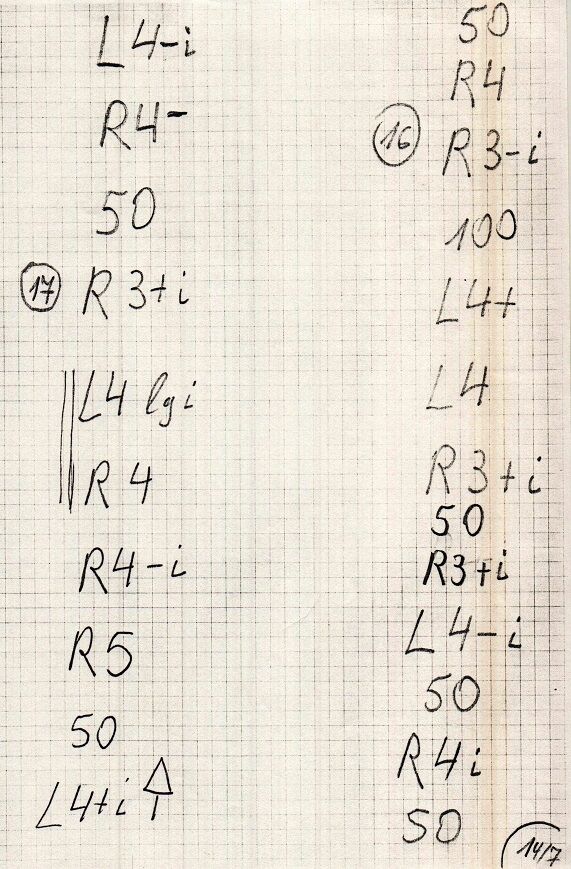 L4-i
R4-
50
17 R3+i
L4 lg i
R4
R4-i
R5
50
L4+i
50
R4
16 R3-i
100
L4+
L4
R3+i
50
R3+i
L4-i
50
R4i
50
14/7